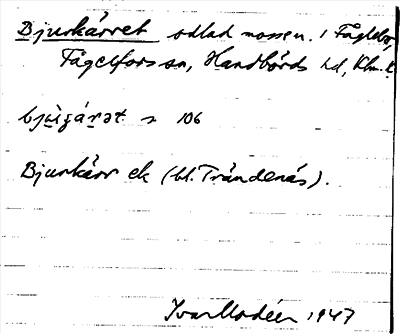 Bjurkärret odlad mossen. i Fågelfors,
Fågelfors sn, Handbörds hd, Klm. l.
bjùrgǻrət 2 106
Bjurkärr ek (bl. Trändenäs).
Ivar Modéer 1947